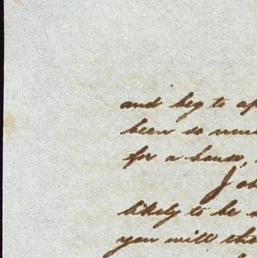 and beg to ap
been so muc
for a house,
Jos
likely to be s
you will the